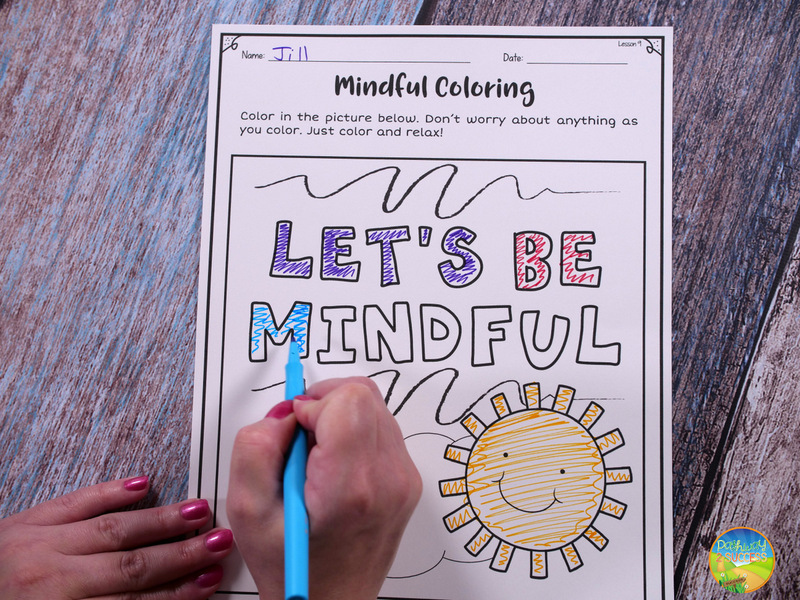 Lesson 9
Name: Jill Date:
Mindful Coloring
Color in the picture below. Don't worry about anything as
you color. Just color and relax!
LET'S BE
MINDFUL
Pathway
2 SUCCESS